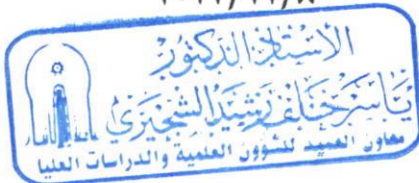 الأستاذ الدكتور
ياسر خلف رشيد الشجيري
معاون العميد للشؤون العلمية والدراسات العليا